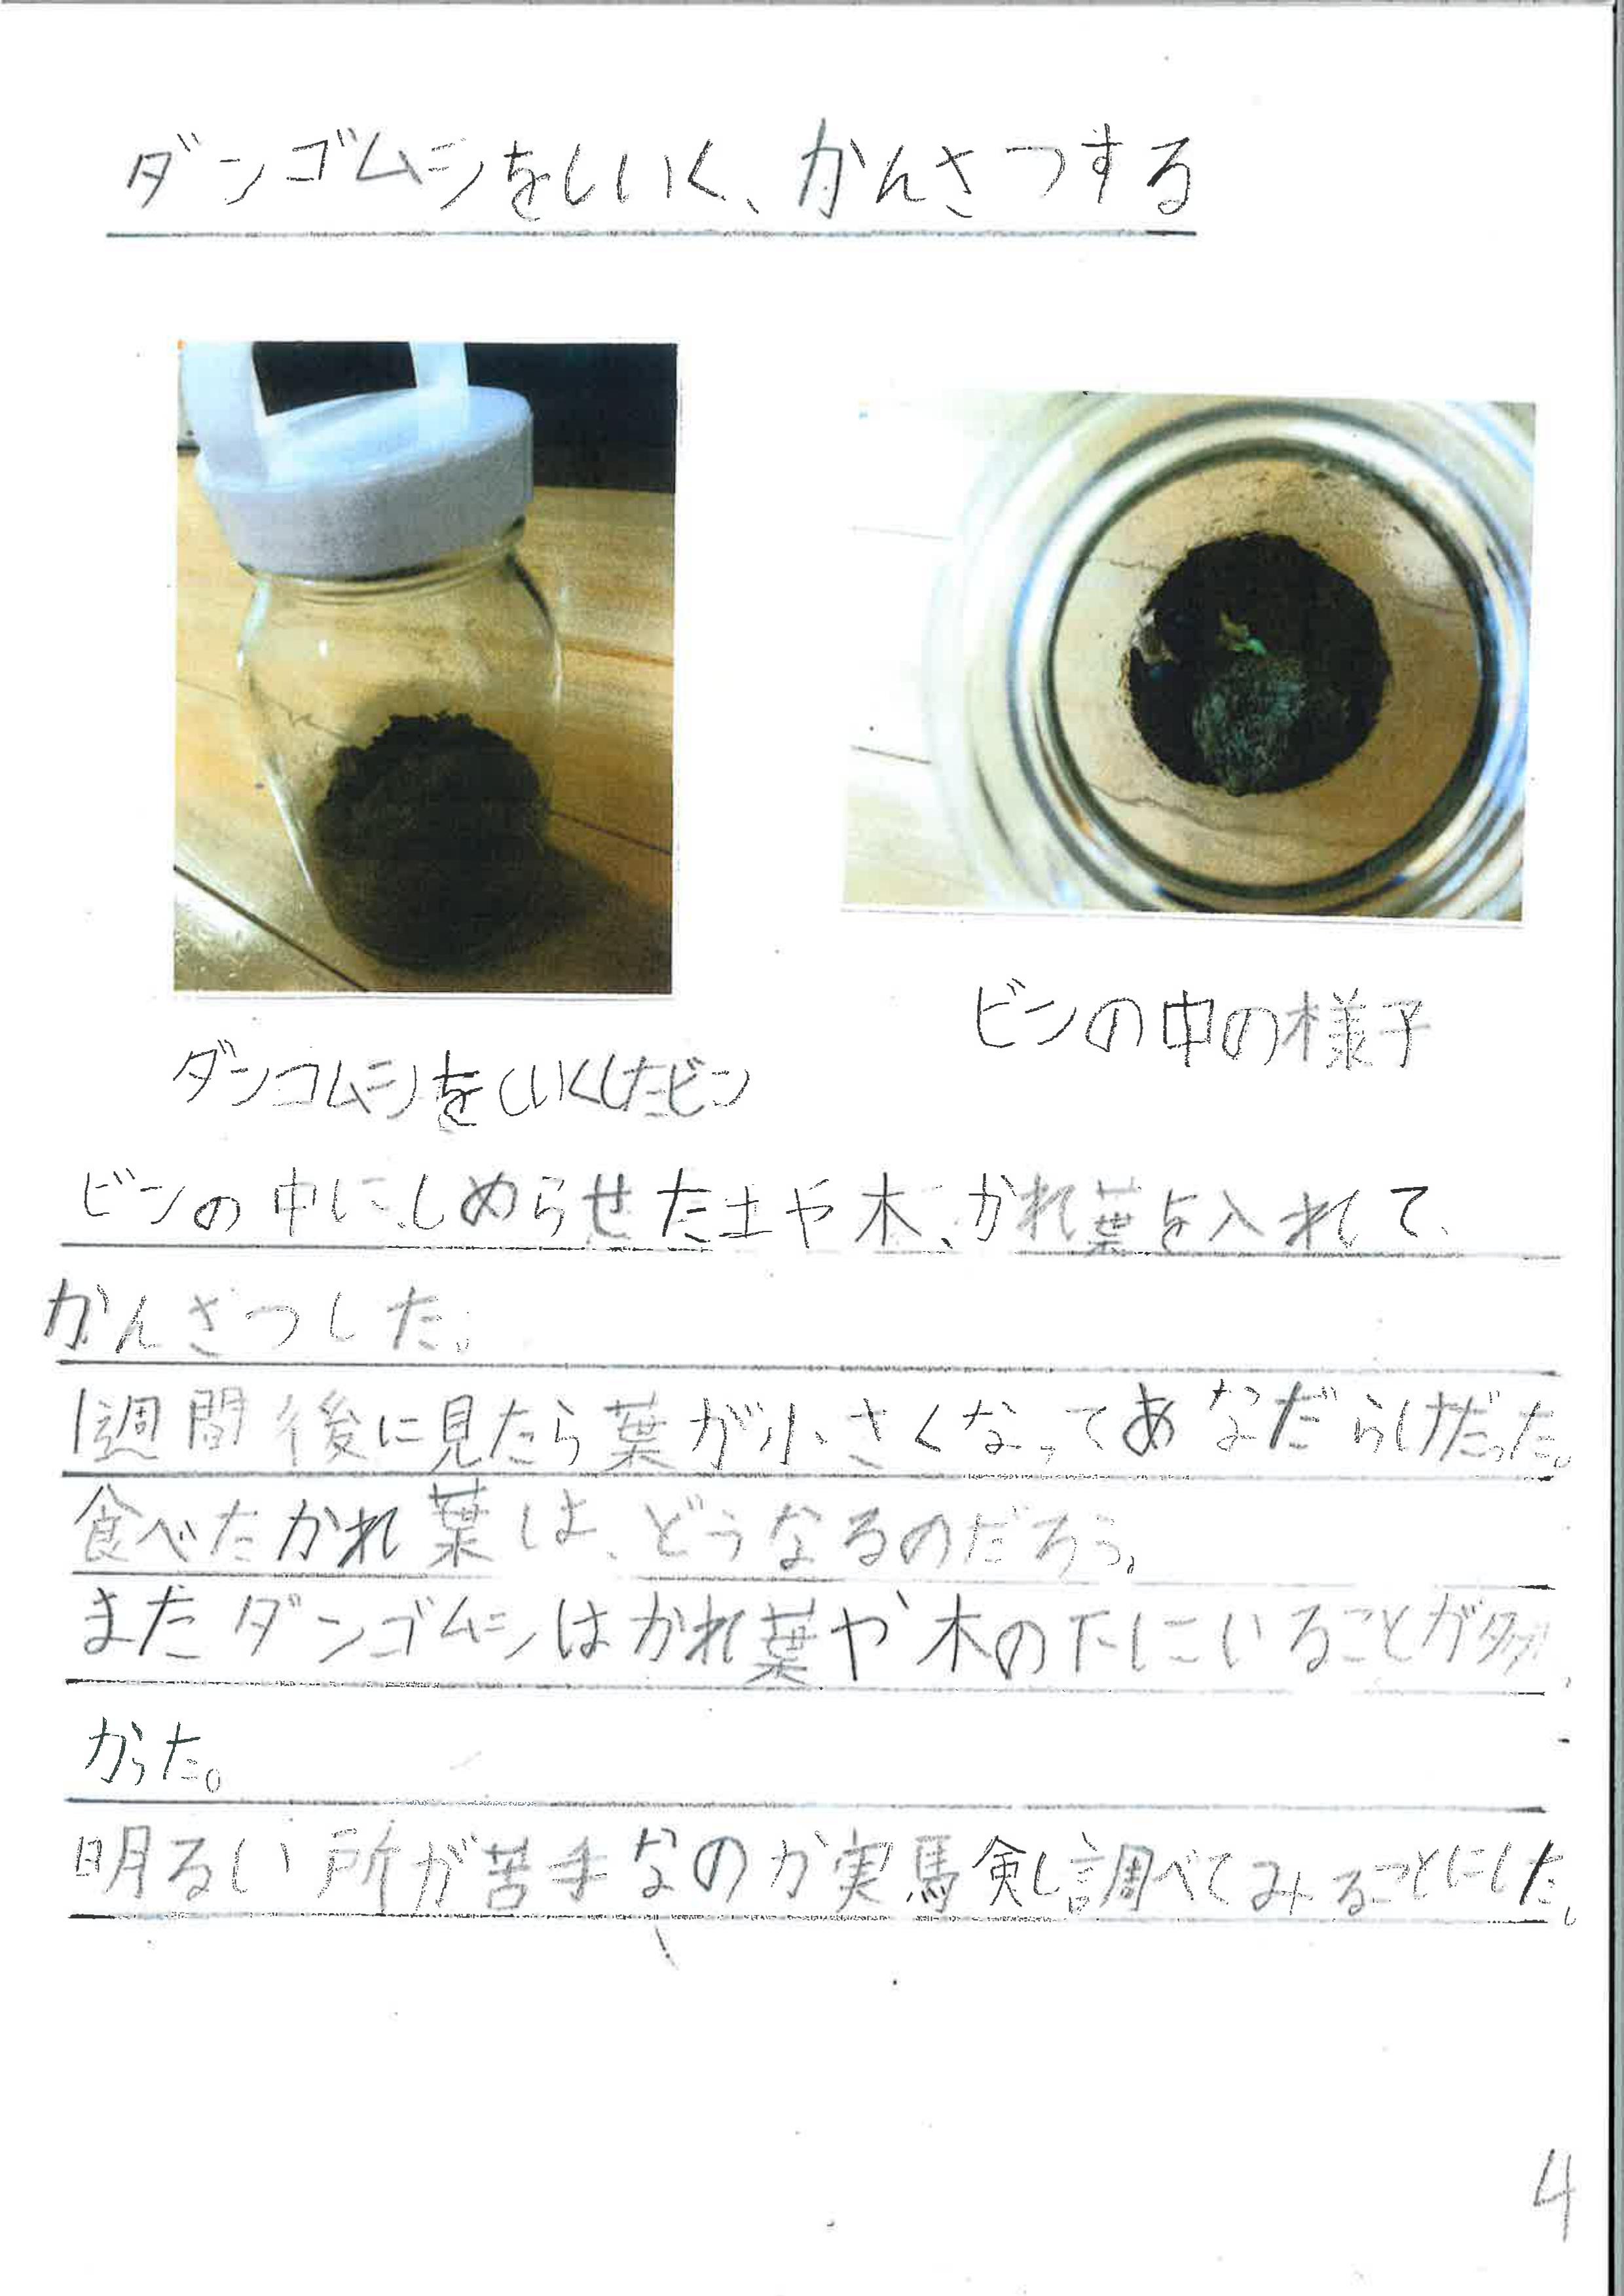 ダンゴムシをしいく、かんさつする
ダンゴムシをしいくしたビン
ビンの中の様子
ビンの中に、しめらせた土や木、かれ葉を入れて
かんさつした。
1週間後に見たら葉が小さくなってあなだらけだった。
食べたかれ葉は、どうなるのだろう。
またダンゴムシはかれ葉や木の下にいることが多
かった。
明るい所が苦手なのか実験し調べてみることにした。
4